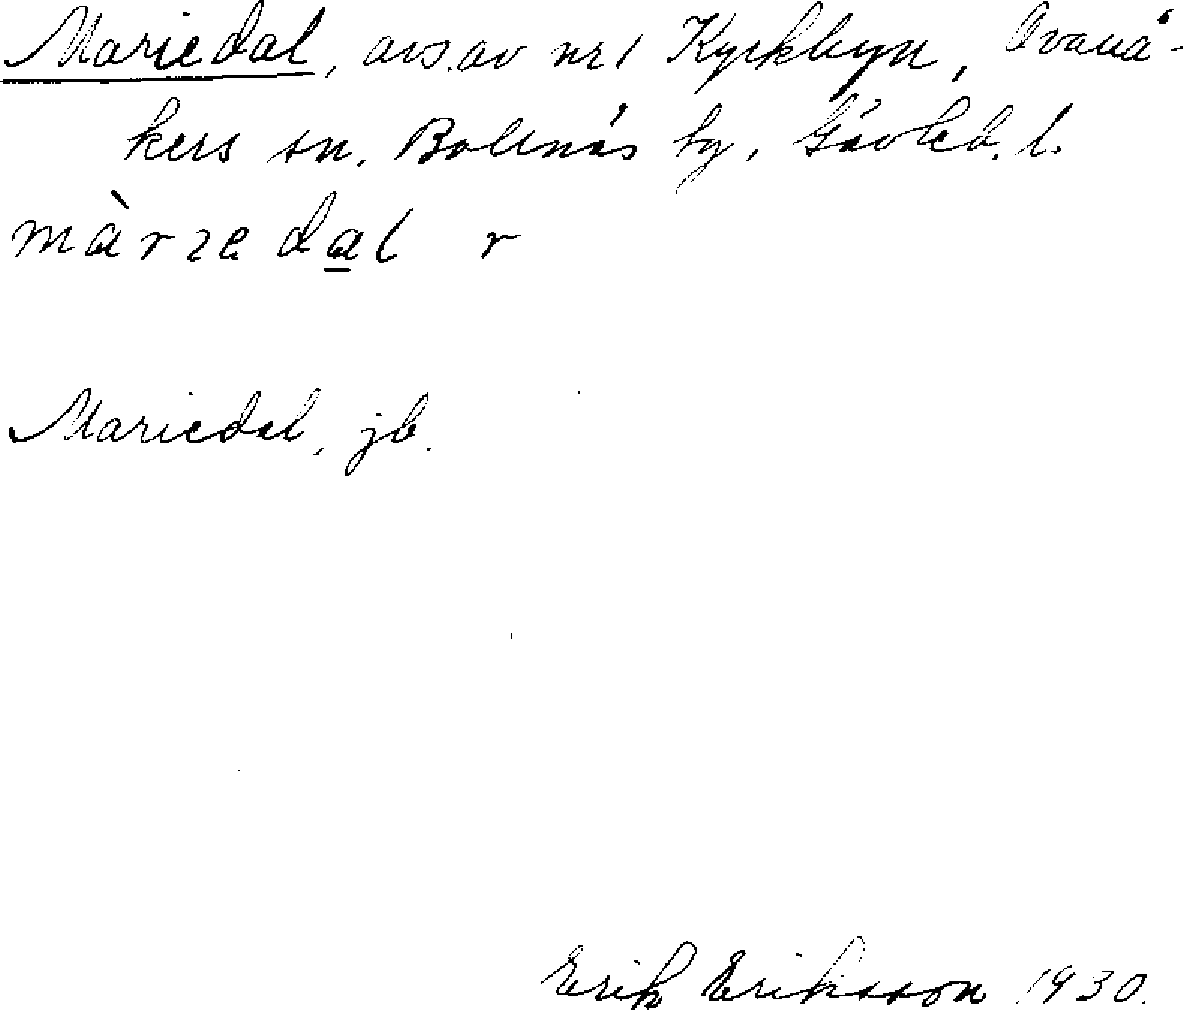 Mariedal, avs. av nr 1 Kyrkbyn, Ovanå-
kers sn. Bollnäs tg, Gävleb. l.
màrzedal r
Mariedal, jb.
Erik Eriksson 1930.